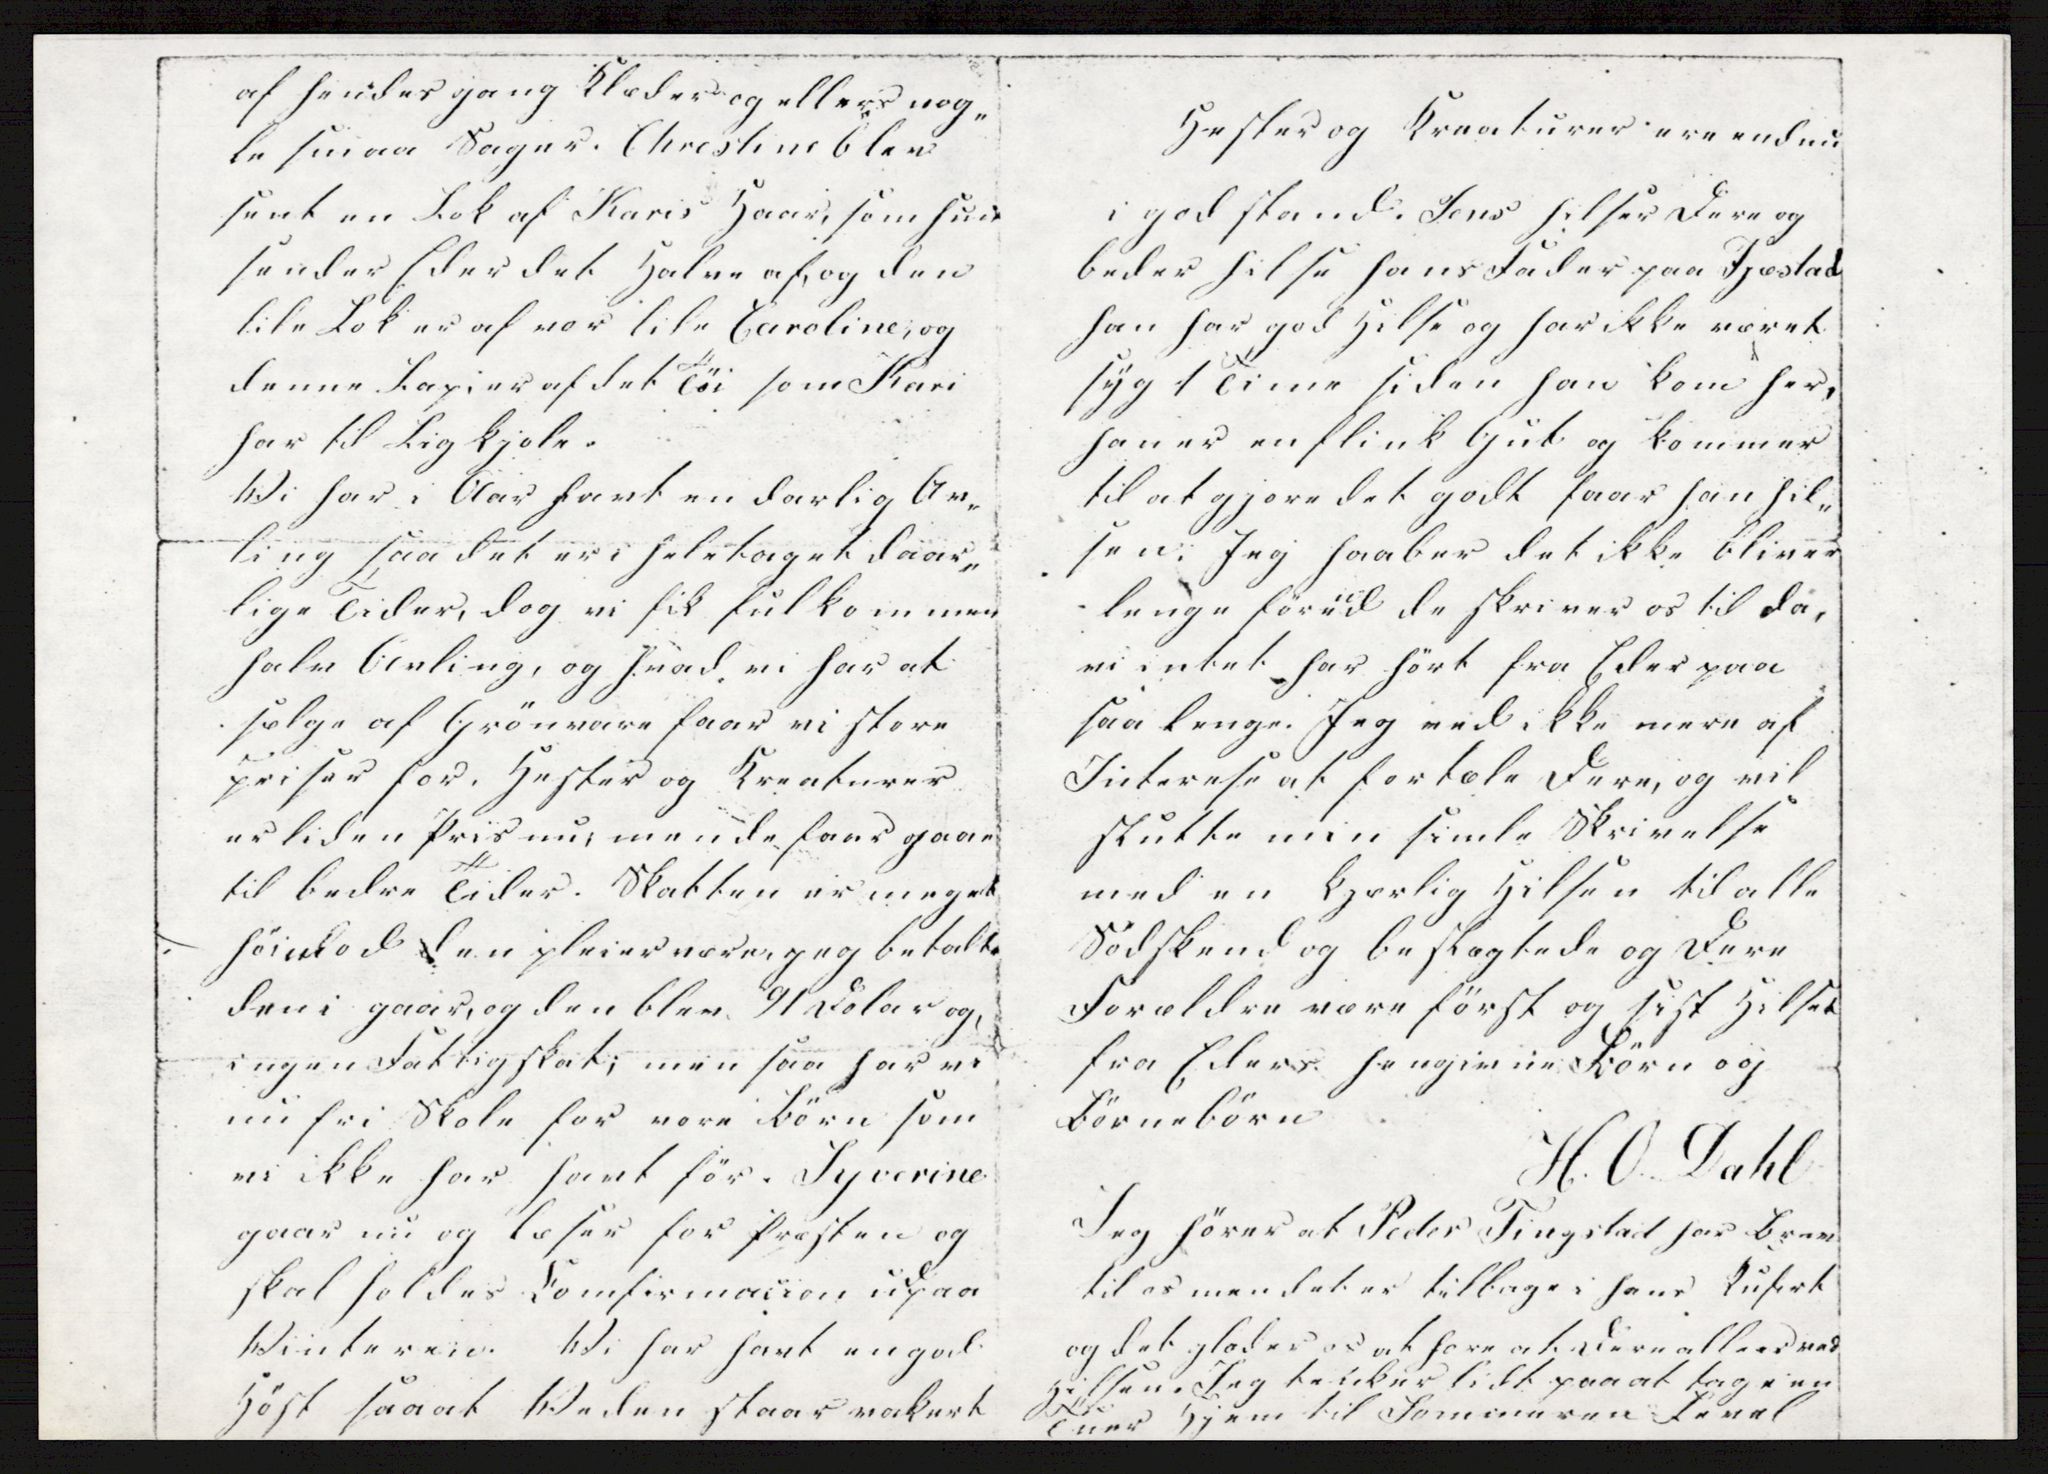 af hendes gang Klæder og ellers nog„
le smaa Sager. Chrestine blev
sent en Lok af Karis Haar, som hun
sender Eder det Halve af, og den
lile Lok er af vor lile Caroline, og
denne Lap er af det Töi som Kari
har til Ligkjole.
Wi har i Aar havt en darlig Av„
ling saa det er i heletaget daar„
lige Tider, dog vi fik fulkommen
halv Avling, og hvad vi har at
sælge af Grönvare faar vi store
priser for. Hester og Kreaturer
er liden Pris nu, men de faar gaae
til bedre Tider. Skatten er meget
höi imod den pleier være, jeg betalte
den i gaar, og den blev 91 Dolar og,
ingen Fattigskat; men saa har vi
nu fri Skole for vore Börn som
vi ikke har havt för. Syverine
gaar nu og læser for Presten og
skal holdes Comfirmacion udpaa
Winteren. Wi har havt en god
Höst saa at Weden staar vakert
Hester og Kreaturer ere endnu
i god stand. Jens hilser Dere og
beder hilse hans Fader paa Fjøstad
han har god Hilse og har ikke været
syg 1 Time siden han kom her,
han er en flink Gut og kommer
til at gjøre det godt faar han hil„
sen. Jeg haaber det ikke bliver
lenge förud de skriver os til da,
vi intet har hört fra Eder paa
saa lenge. Jeg ved ikke mere af
Interese at fortæle Dere, og vil
slutte min simle Skrivelse
med en kjærlig Hilsen til alle
Södskend og beslægtede og Dere
Forældre være först og sist Hilset
fra Eders hengivne Börn og
Börnebörn
H. O. Dahl
Jeg hörer at Peder Tingstad har Brev
til os men det er tilbage i hans Kufert
og det glæder os at høre at Dere alle er ved
Hilsen. Jeg tenker lidt paa at tage en
Tuer Hjem til Sommeren Level